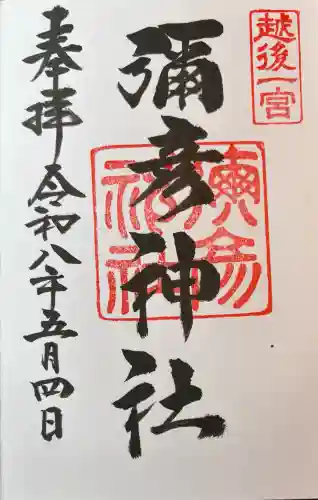 越後一宮
彌彦神社
奉拝
令和八年五月四日